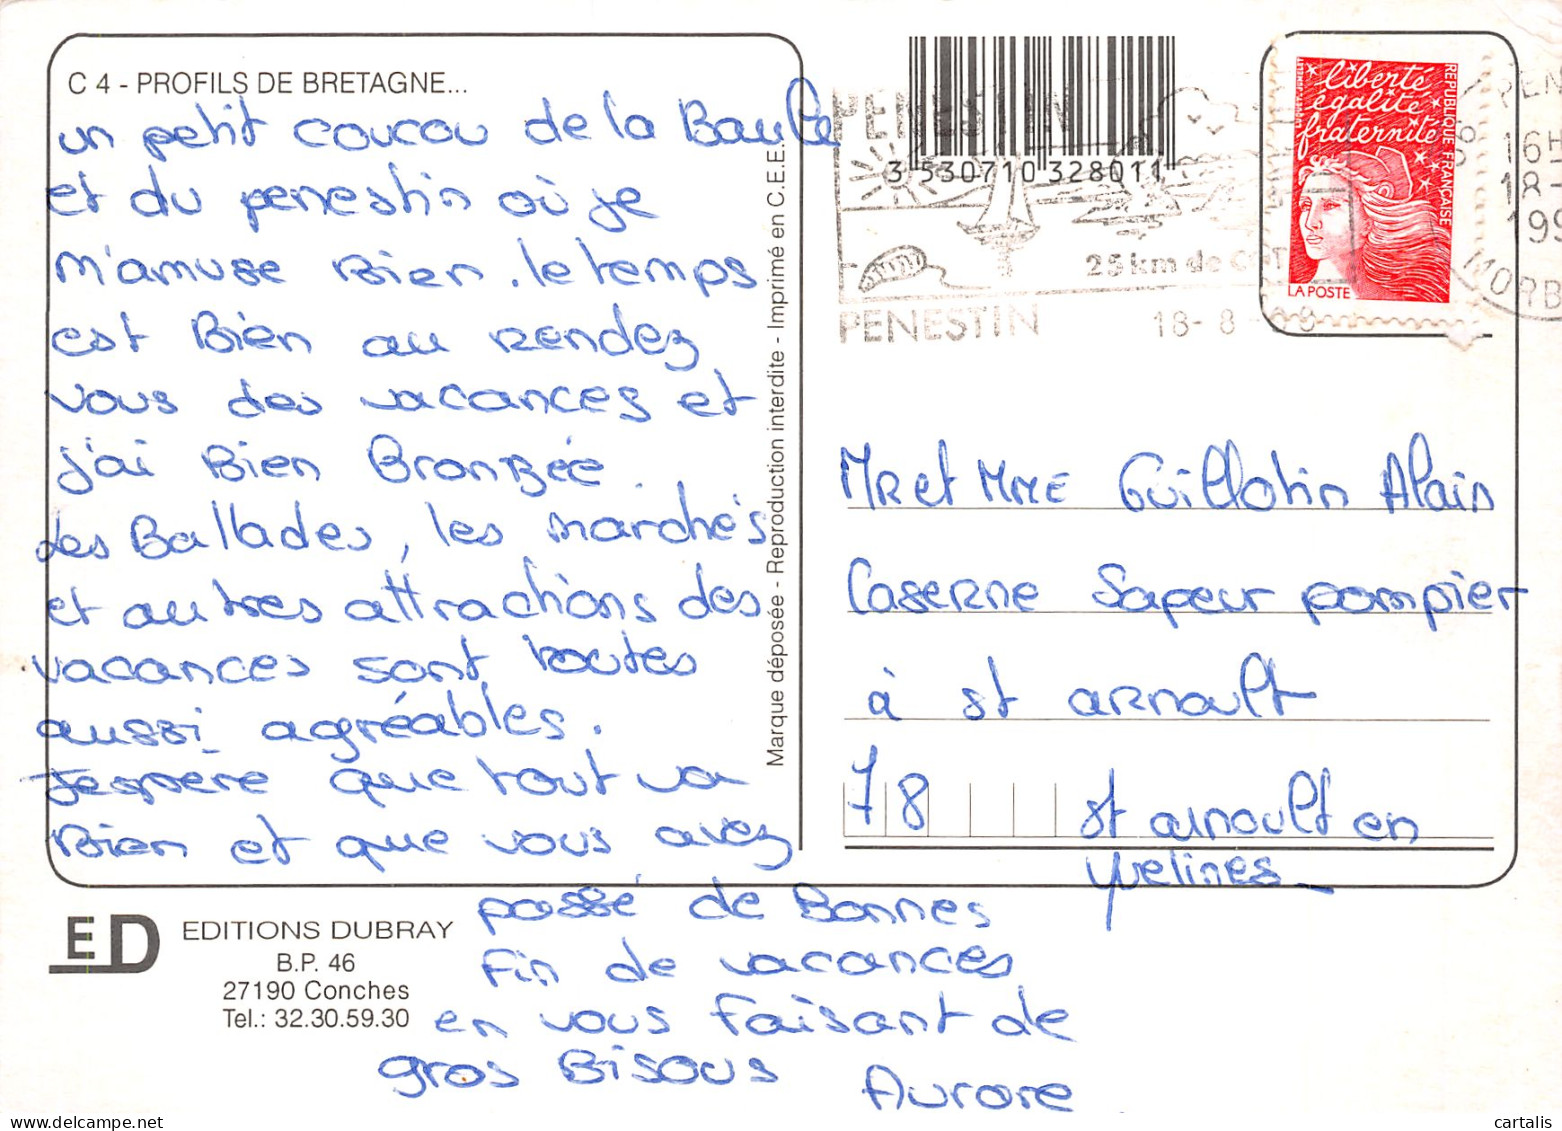 C 4 - PROFILS DE BRETAGNE...
un petit coucou de la Baule
et du penestin où je
m'amuse Bien. le temps
est Bien au rendez
vous des vacances et
j'ai Bien Bronzée.
des Ballades, les marchés
et autres attractions des
vacances sont toutes
aussi agréables.
J'espere que tout va
Bien et que vous avez
passé de Bonnes
fin de vacances
en vous faisant de
gros Bisous
Aurore
EDITIONS DUBRAY
B.P. 46
27190 Conches
Tel.: 32.30.59.30
ED
Marque déposée - Reproduction interdite - Imprimé en C.E.E.
3 530710 328011
PENESTIN
25 km de
PENESTIN
18- 8 - 8
liberté
égalité
fraternité
REPUBLIQUE FRANÇAISE
LA POSTE
PEN
16H
18-
199
MORB
MR et MME Guillotin Alain
Caserne Sapeur pompier
à st arnoult
78 st arnoult en
yvelines_